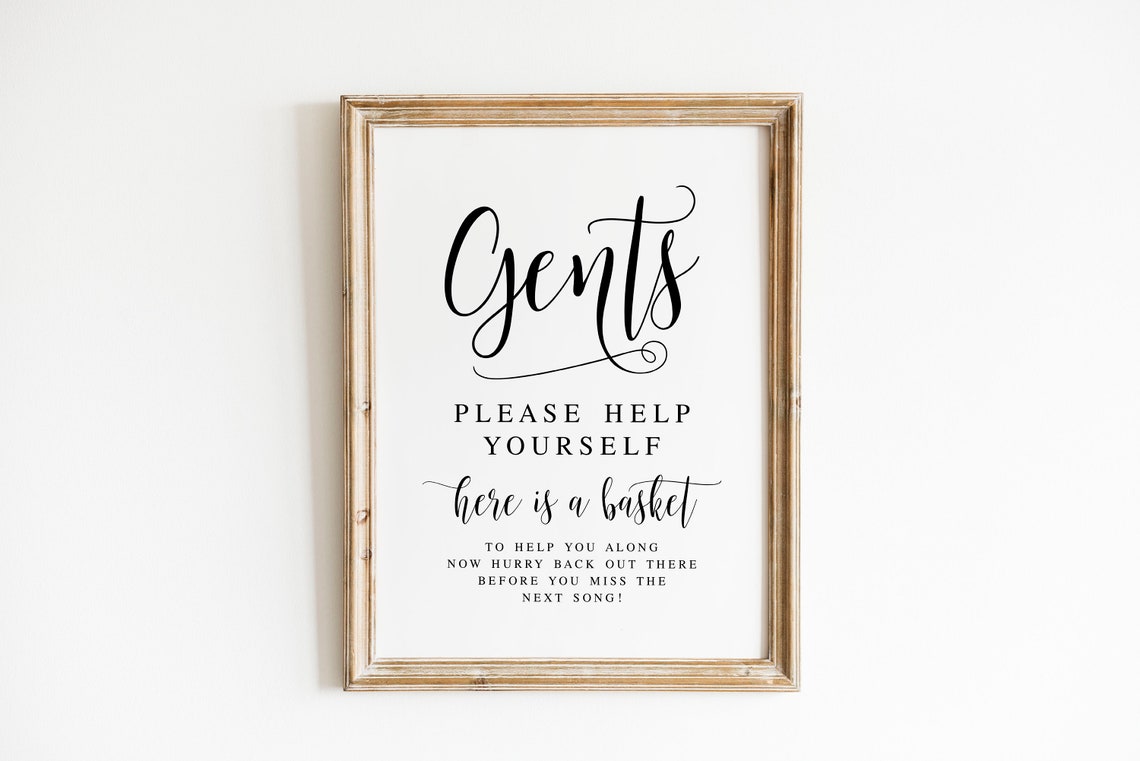 Gents
PLEASE HELP
YOURSELF
here is a basket
TO HELP YOU ALONG
NOW HURRY BACK OUT THERE
BEFORE YOU MISS THE
NEXT SONG!